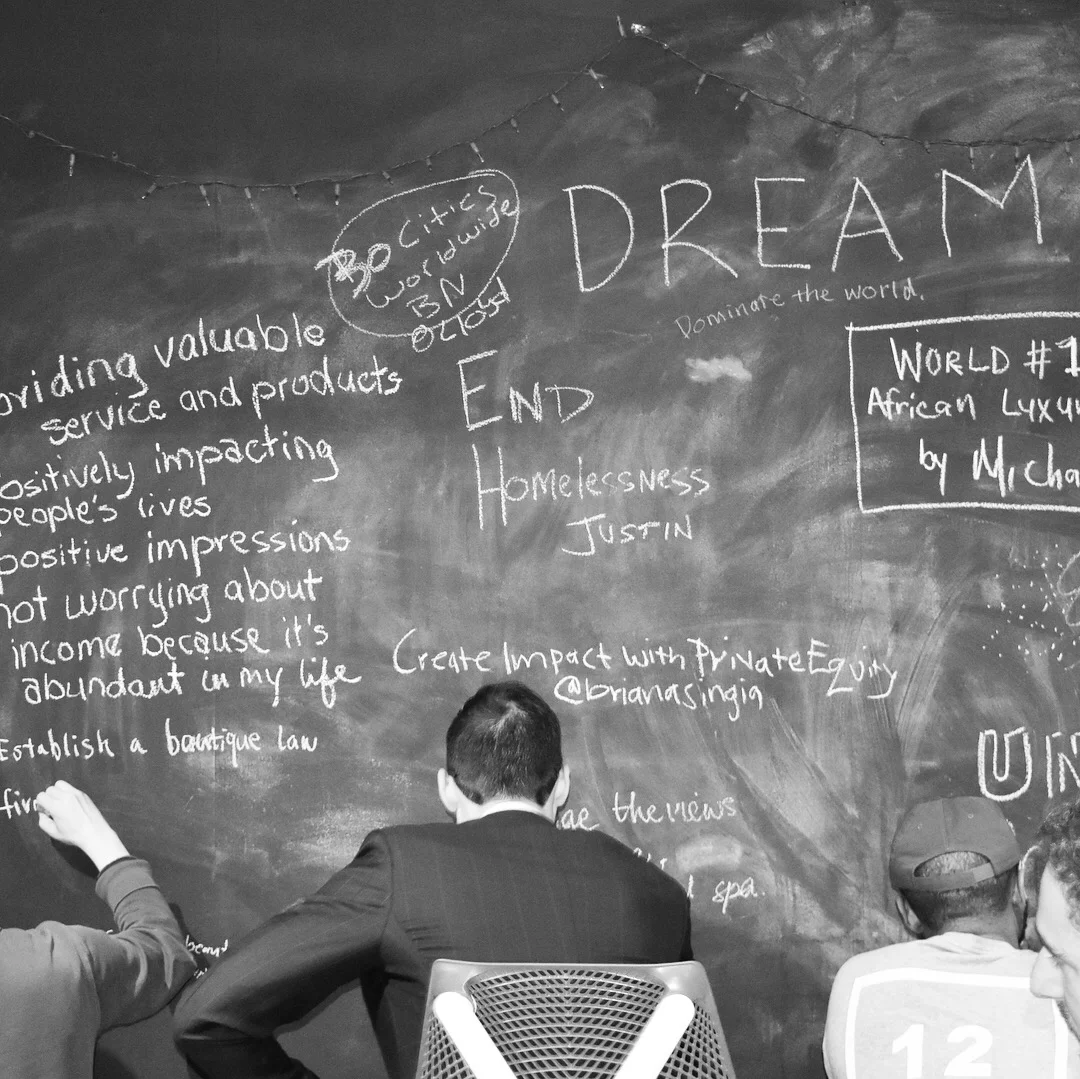 DREAM
Dominate the world.
Cities
Worldwide
BN
oviding valuable
service and products
ositively impacting
people's lives
positive impressions
not worrying about
income because it's
abundant in my life
Establish a boutique law
fir
END
HomelessNess
JUSTIN
Create Impact with PrivateEquity
@brianasingia
WORLD #1
African Luxu
by Micha
the views
spa.
UN
12